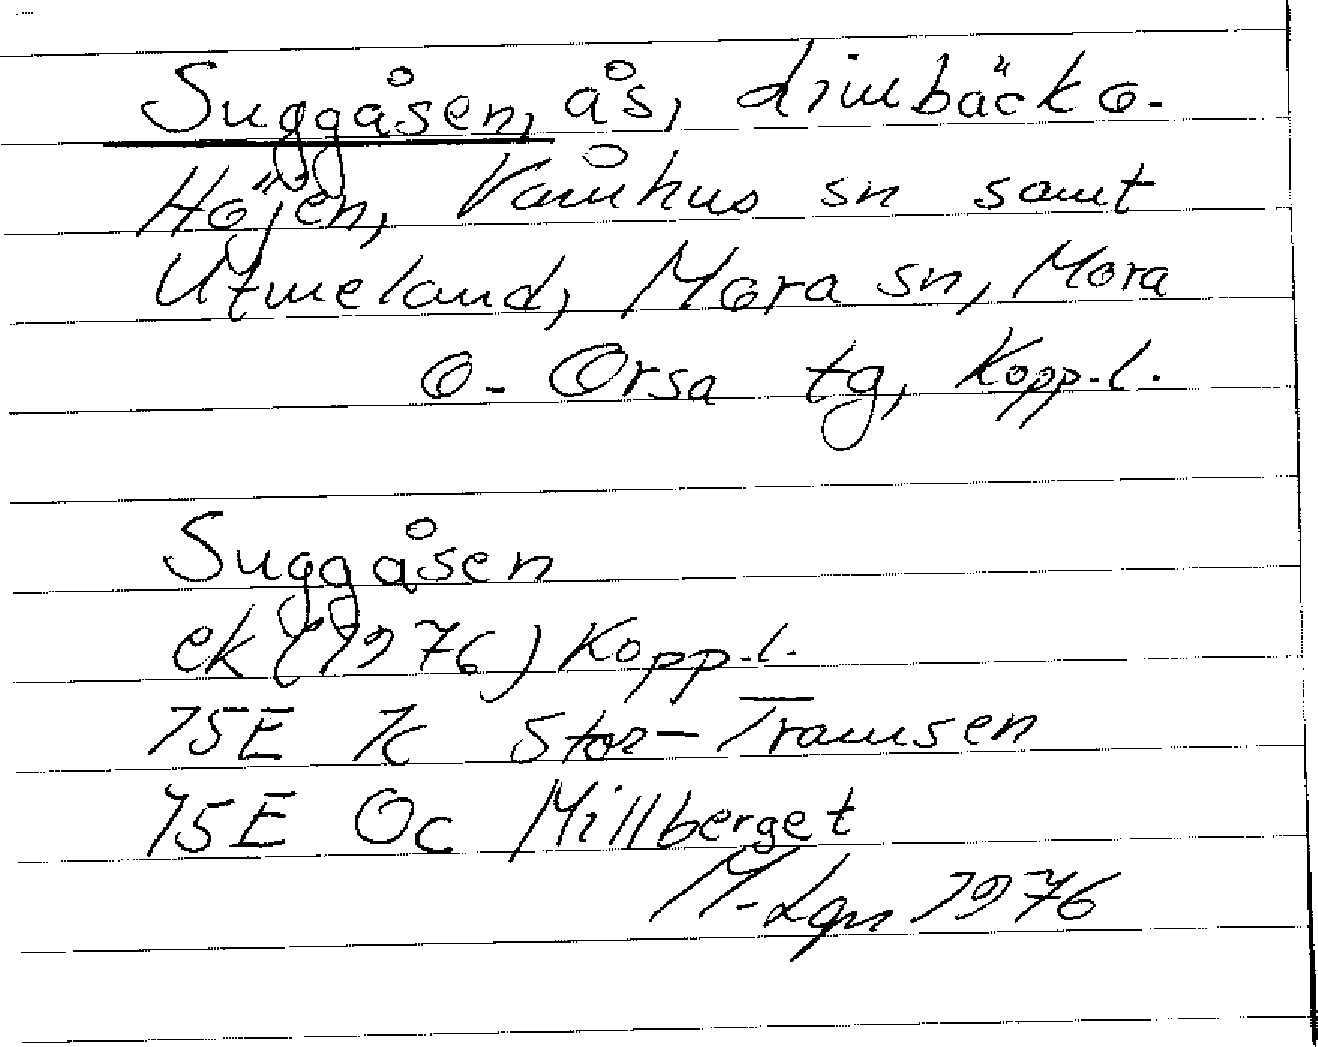 Suggåsen, ås, Limbäck o.
Höjen, Våmhus sn samt
Utmeland, Mora sn, Mora
o. Orsa tg, Kopp.l.
Suggåsen
ek (1976) Kopp.l.
15E 1c Stor-Tramsen
15E 0c Millberget
M-Lgn 1976